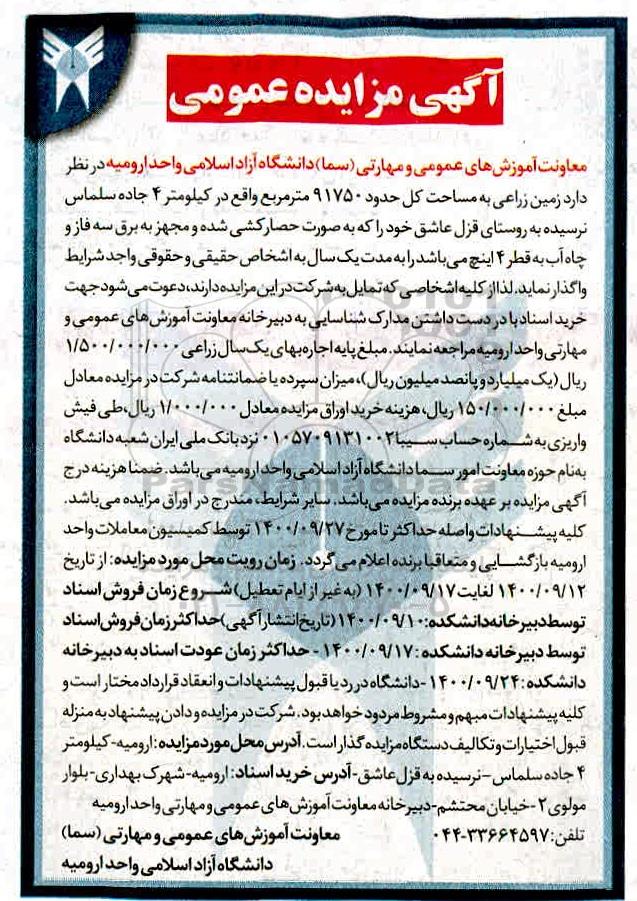 آگهی مزایده عمومی
معاونت آموزش های عمومی و مهارتی (سما) دانشگاه آزاد اسلامی واحد ارومیه در نظر
دارد زمین زراعی به مساحت کل حدود ۹۱۷۵۰ مترمربع واقع در کیلومتر ۴ جاده سلماس
نرسیده به روستای قزل عاشق خود را که به صورت حصارکشی شده و مجهز به برق سه فاز و
چاه آب به قطر ۴ اینچ می باشد را به مدت یک سال به اشخاص حقیقی و حقوقی واجد شرایط
واگذار نماید. لذا از کلیه اشخاصی که تمایل به شرکت در این مزایده دارند، دعوت می شود جهت
خرید اسناد با در دست داشتن مدارک شناسایی به دبیرخانه معاونت آموزش های عمومی و
مهارتی واحد ارومیه مراجعه نمایند. مبلغ پایه اجاره بهای یک سال زراعی ۱/۵۰۰/۰۰۰/۰۰۰
ریال (یک میلیارد و پانصد میلیون ریال)، میزان سپرده یا ضمانتنامه شرکت در مزایده معادل
مبلغ ۱۵۰/۰۰۰/۰۰۰ ریال، هزینه خرید اوراق مزایده معادل ۱/۰۰۰/۰۰۰ ریال، طی فیش
واریزی به شماره حساب سیبا ۰۱۰۵۷۰۹۱۳۱۰۰۲ نزد بانک ملی ایران شعبه دانشگاه
به نام حوزه معاونت امور سما دانشگاه آزاد اسلامی واحد ارومیه می باشد. ضمنا هزینه درج
آگهی مزایده بر عهده برنده مزایده می باشد. سایر شرایط، مندرج در اوراق مزایده می باشد.
کلیه پیشنهادات واصله حداکثر تا مورخ ۱۴۰۰/۰۹/۲۷ توسط کمیسیون معاملات واحد
ارومیه بازگشایی و متعاقبا برنده اعلام می گردد. زمان رویت محل مورد مزایده: از تاریخ
۱۴۰۰/۰۹/۱۲ لغایت ۱۴۰۰/۰۹/۱۷ (به غیر از ایام تعطیل) شروع زمان فروش اسناد
توسط دبیرخانه دانشکده: ۱۴۰۰/۰۹/۱۰ (تاریخ انتشار آگهی) حداکثر زمان فروش اسناد
توسط دبیرخانه دانشکده: ۱۴۰۰/۰۹/۱۷ - حداکثر زمان عودت اسناد به دبیرخانه
دانشکده: ۱۴۰۰/۰۹/۲۴ - دانشگاه در رد یا قبول پیشنهادات و انعقاد قرارداد مختار است و
کلیه پیشنهادات مبهم و مشروط مردود خواهد بود. شرکت در مزایده و دادن پیشنهاد به منزله
قبول اختیارات و تکالیف دستگاه مزایده گذار است. آدرس محل مورد مزایده: ارومیه - کیلومتر
۴ جاده سلماس - نرسیده به قزل عاشق - آدرس خرید اسناد: ارومیه - شهرک بهداری - بلوار
مولوی ۲ - خیابان محتشم - دبیرخانه معاونت آموزش های عمومی و مهارتی واحد ارومیه
تلفن: ۳۳۶۶۴۵۹۷-۰۴۴
معاونت آموزش های عمومی و مهارتی (سما)
دانشگاه آزاد اسلامی واحد ارومیه
ParsNamadData